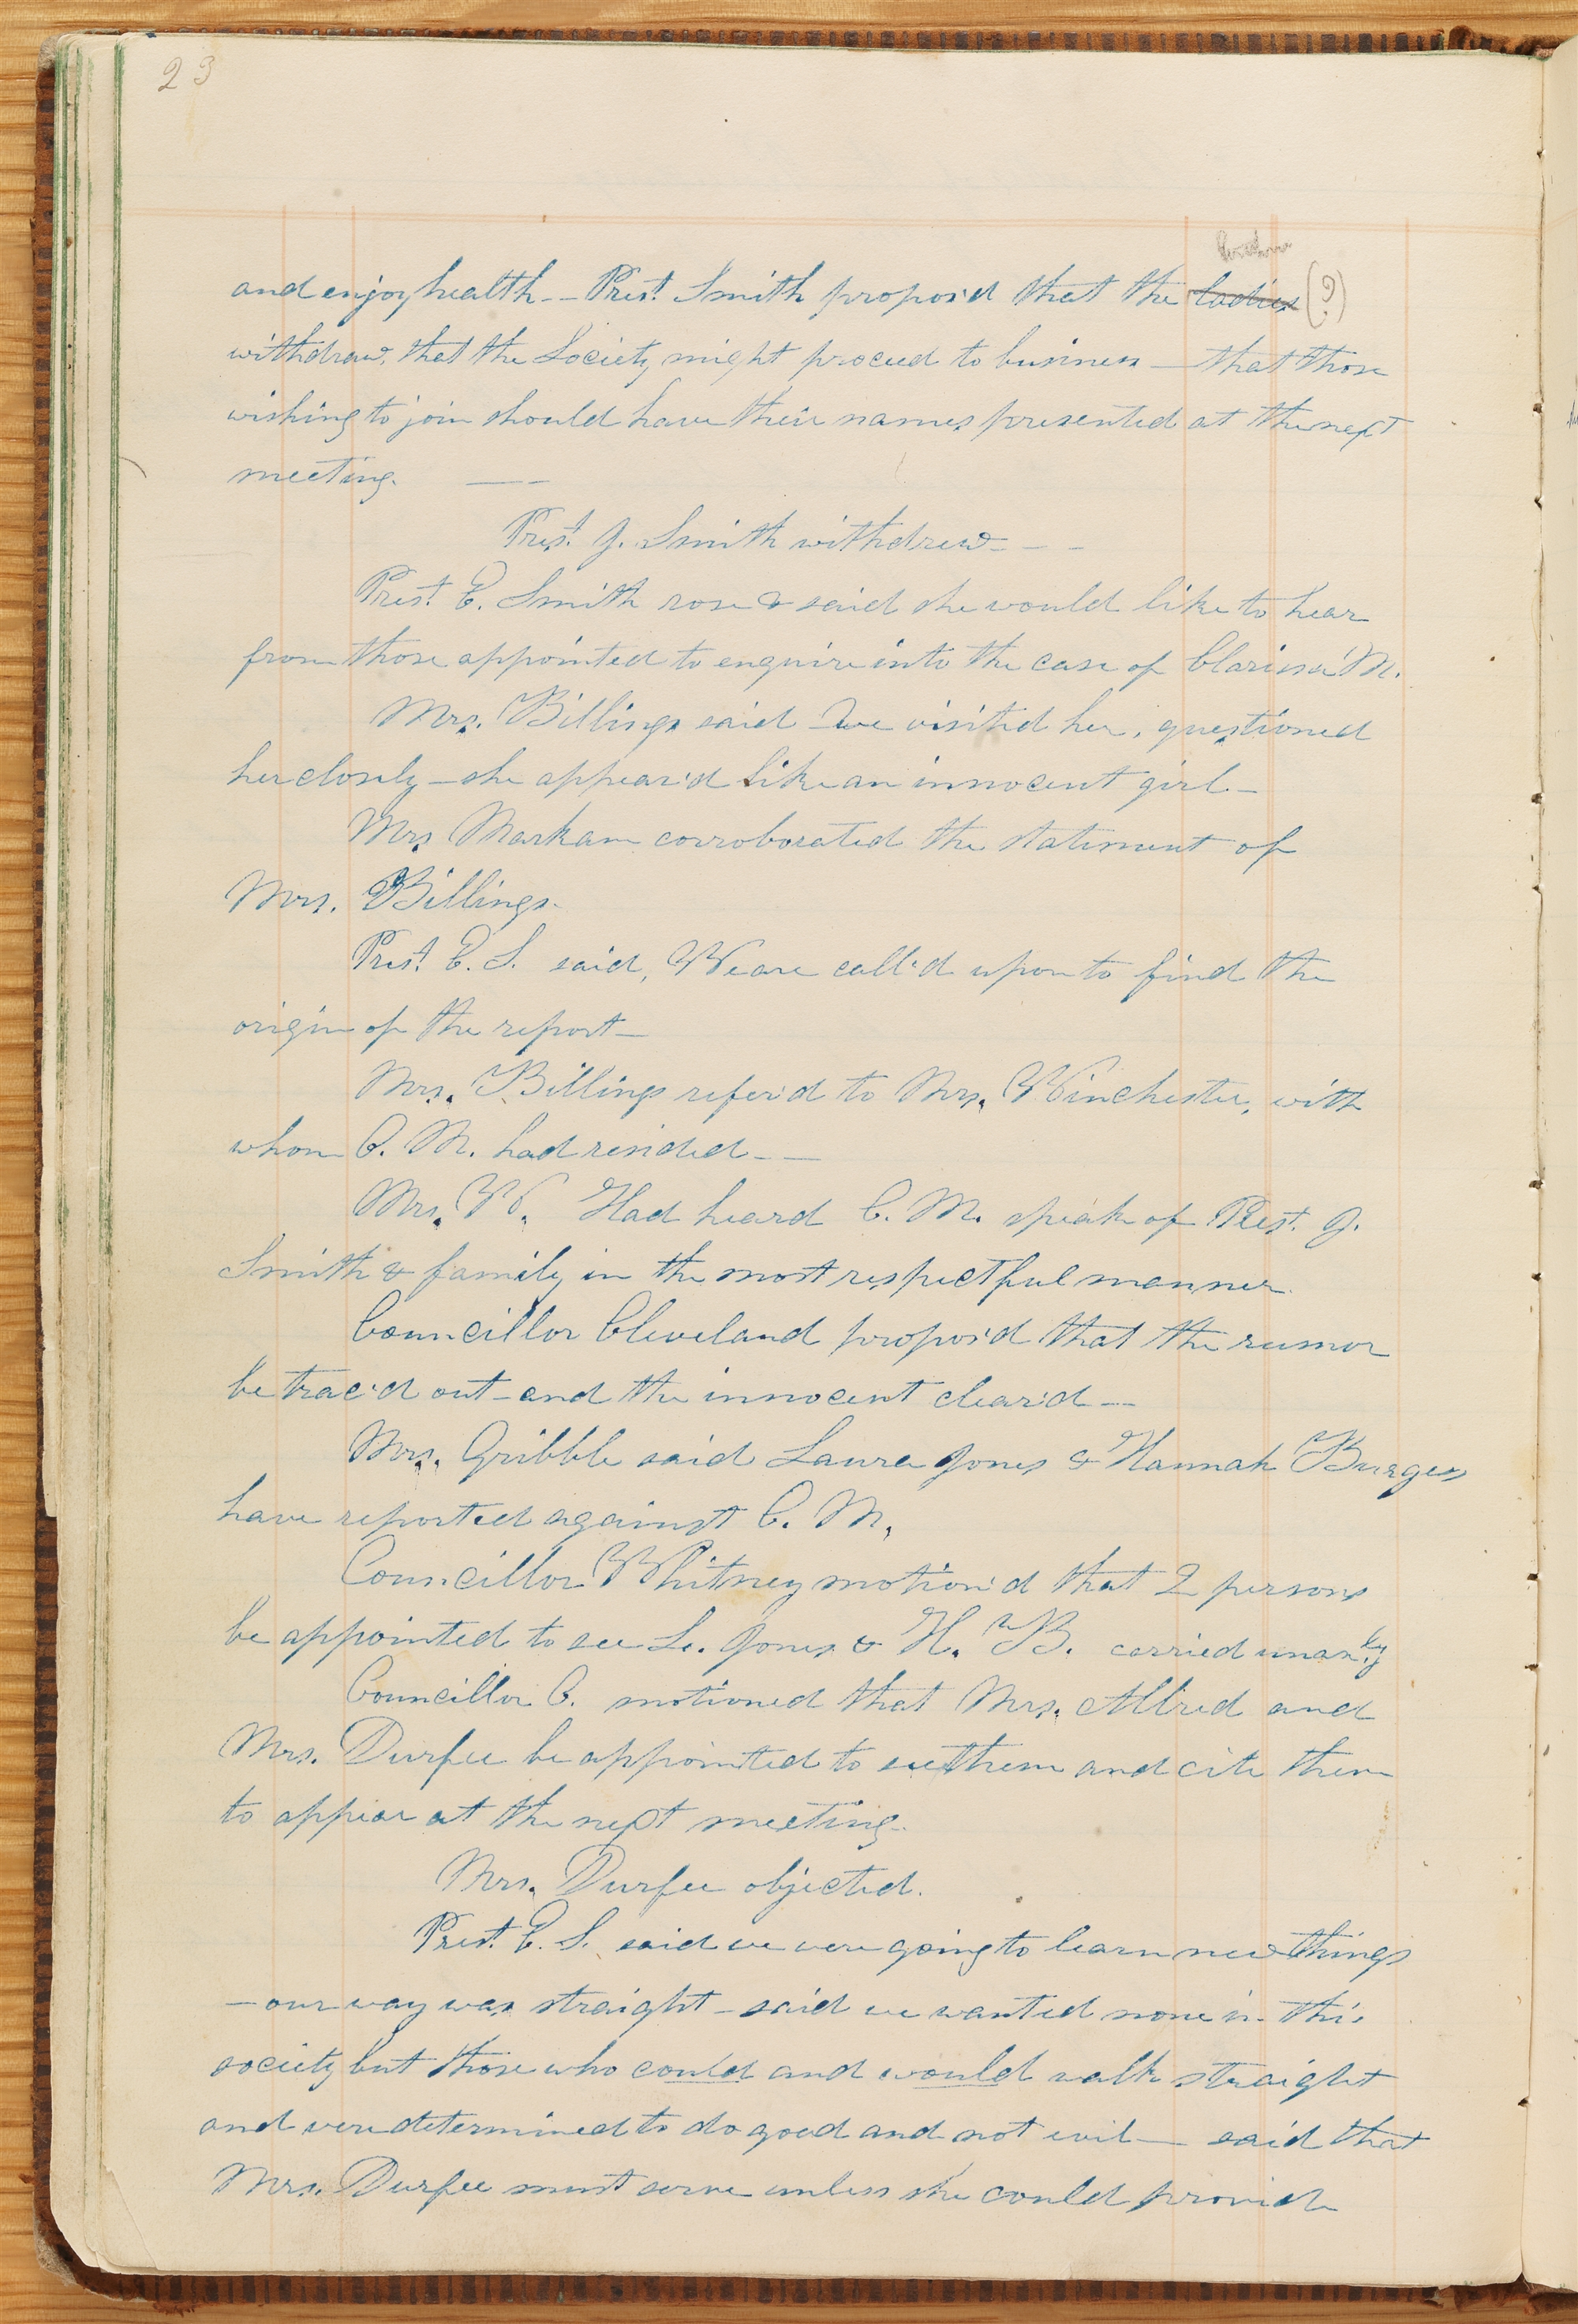 23
and enjoy health — Prest. Smith propos'd that the ladies (?)
withdraw, that the Society might proceed to business — that those
wishing to join should have their names presented at the next
meeting. —
Prest. J. Smith withdrew - - -
Prest. E. Smith rose & said she would like to hear
from those appointed to enquire into the case of Clarissa M.
Mrs. Billings said we visited her, questioned
her closely — she appear'd like an innocent girl —
Mrs Markam corroborated the statement of
Mrs. Billings.
Prest. E. S. said, We are call'd upon to find the
origin of the report —
Mrs. Billings refer'd to Mrs. Winchester, with
whom C. M. had resided — —
Mrs. W. Had heard C. M. speak of Prest. J.
Smith & family in the most respectful manner.
Councillor Cleveland propos'd that the rumor
be trac'd out — and the innocent clear'd —
Mrs. Gribble said Laura Jones & Hannah Burgess
have reported against C. M.
Councillor Whitney motion'd that 2 persons
be appointed to see L. Jones & H. B. carried unanly
Councillor C. motioned that Mrs. Allred and
Mrs. Durfee be appointed to see them and cite them
to appear at the next meeting.
Mrs. Durfee objected.
Prest. E. S. said we were going to learn new things
— our way was straight — said we wanted none in this
society but those who could and would walk straight
and were determined to do good and not evil — said that
Mrs. Durfee must serve unless she could provide